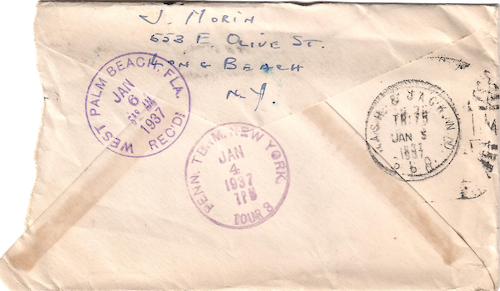 J. Morin
553 E Olive St.
Long Beach
N.Y.
WEST PALM BEACH, FLA.
JAN
6
AM
1937
REC'D.
PENN. TERM. NEW YORK.
JAN
4
1937
7PM
TOUR 3
WASH. & JACK.
JAN 5
1937
R.P.O.